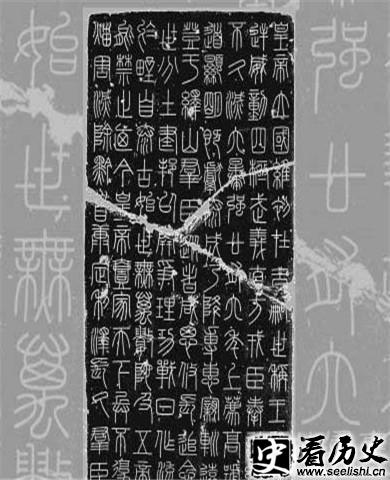 強廿有六
皇帝立國維初在昔嗣世稱王
逆威動四極武義直方戎臣奉
不久滅六暴強廿有六年上薦高號
道顯明既獻泰成乃降專惠親巡
登于繹山群臣從者咸思攸長追念
世分土建邦以開爭理功戰日作流
於野自泰古始世無萬數陀及五帝
能禁止廼今皇帝壹家天下兵不復
災害滅除黔首康定利澤長久群臣
始世無萬數
史看历史
www.seelishi.cn